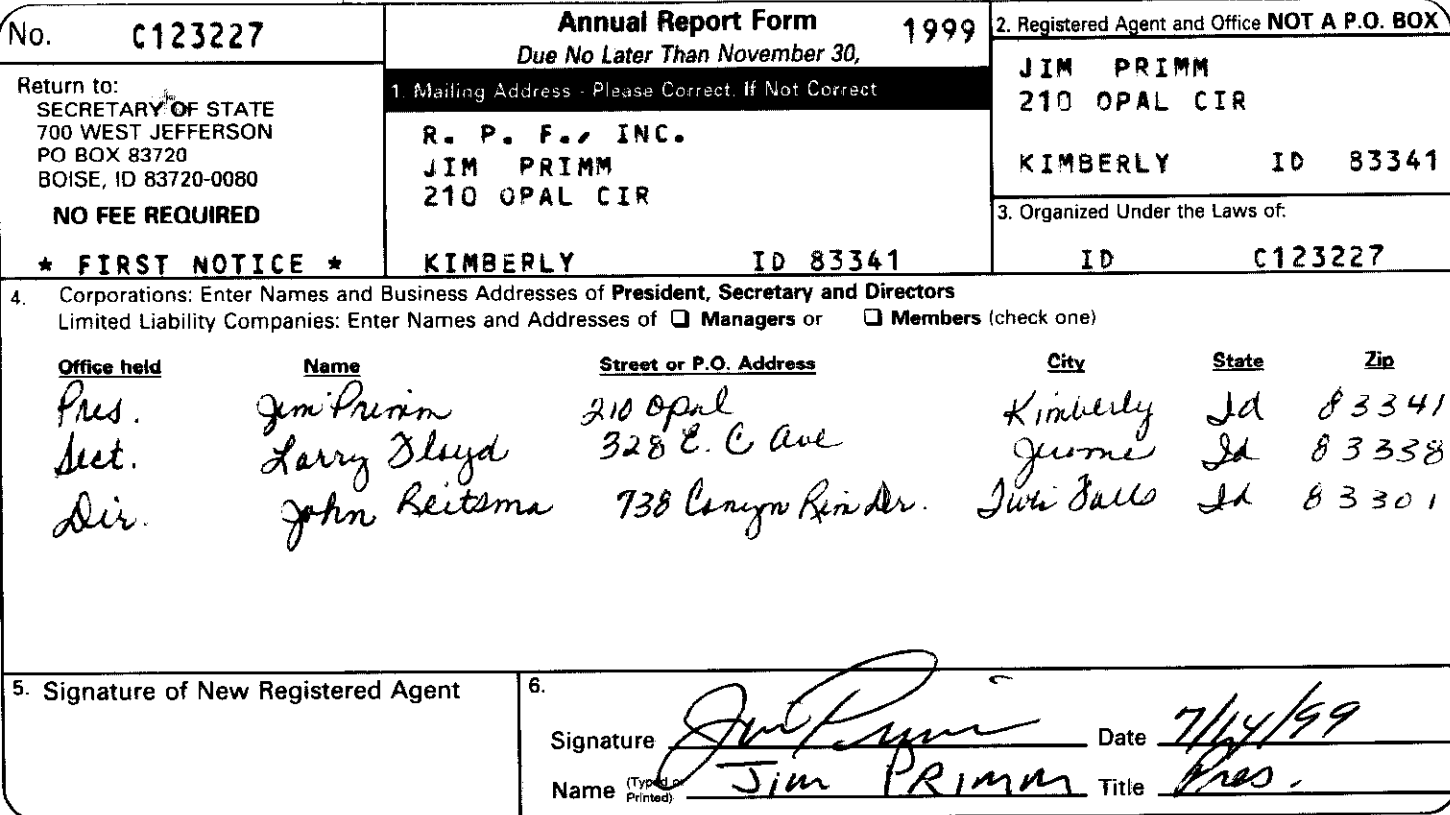 No. C123227
Return to:
SECRETARY OF STATE
700 WEST JEFFERSON
PO BOX 83720
BOISE, ID 83720-0080
NO FEE REQUIRED
* FIRST NOTICE *
Annual Report Form 1999
Due No Later Than November 30,
1. Mailing Address - Please Correct, If Not Correct
R. P. F., INC.
JIM PRIMM
210 OPAL CIR
KIMBERLY ID 83341
2. Registered Agent and Office NOT A P.O. BOX
JIM PRIMM
210 OPAL CIR
KIMBERLY ID 83341
3. Organized Under the Laws of:
ID C123227
4. Corporations: Enter Names and Business Addresses of President, Secretary and Directors
Limited Liability Companies: Enter Names and Addresses of ❏ Managers or ❏ Members (check one)
Office held Name Street or P.O. Address City State Zip
Pres. Jim Primm 210 Opal Kimberly Id 83341
Sect. Larry Floyd 328 E. C Ave Jerome Id 83338
Dir. John Reitsma 738 Canyn Rim Dr. Twin Falls Id 83301
5. Signature of New Registered Agent
6.
Signature Jim Primm Date 7/14/99
Name (Typed or Printed) Jim PRIMM Title Pres.